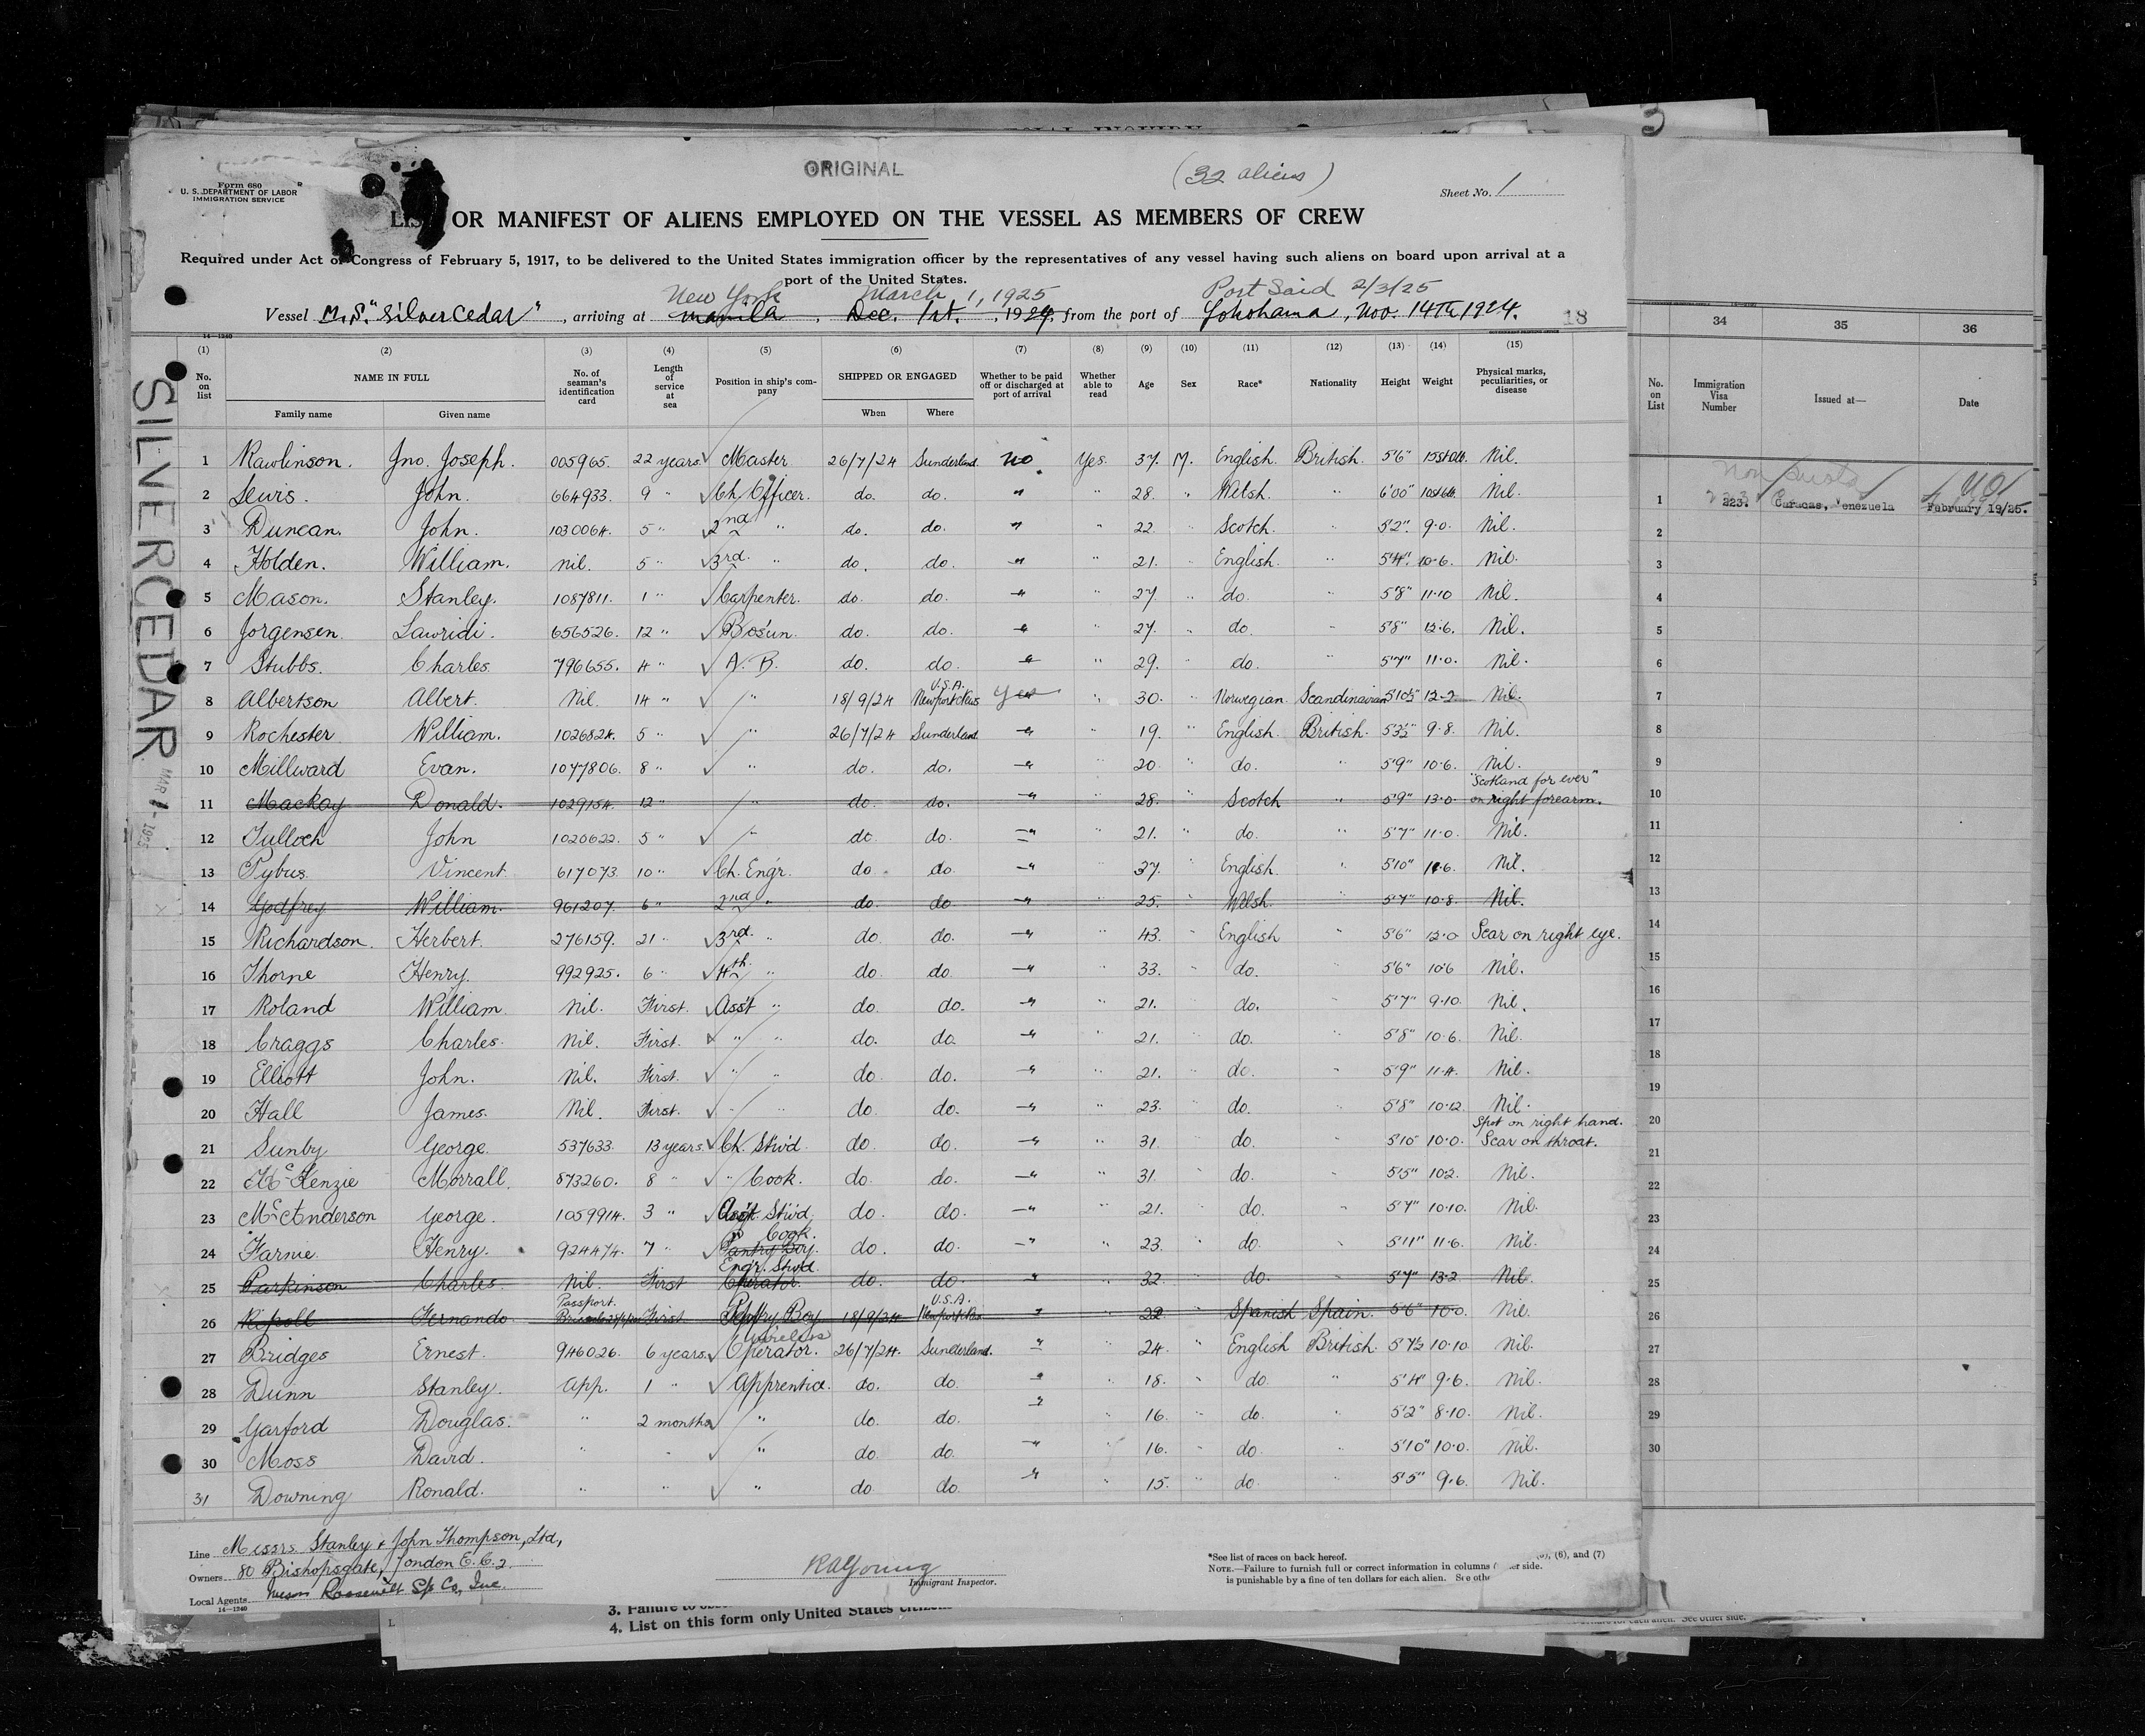 ORIGINAL
(32 aliens)
Form 680
U. S. DEPARTMENT OF LABOR
IMMIGRATION SERVICE
Sheet No. 1
LIST OR MANIFEST OF ALIENS EMPLOYED ON THE VESSEL AS MEMBERS OF CREW
Required under Act of Congress of February 5, 1917, to be delivered to the United States immigration officer by the representatives of any vessel having such aliens on board upon arrival at a
port of the United States.
New York March 1, 1925 Port Said 2/3/25
Vessel M.S. "Silver Cedar", arriving at Manila, Dec. 1st., 1924, from the port of Yokohama, Nov. 14th 1924.
18
14—1240
(1) (2) (3) (4) (5) (6) (7) (8) (9) (10) (11) (12) (13) (14) (15)
No. on list NAME IN FULL Family name Given name No. of seaman's identification card Length of service at sea Position in ship's company SHIPPED OR ENGAGED When Where Whether to be paid off or discharged at port of arrival Whether able to read Age Sex Race* Nationality Height Weight Physical marks, peculiarities, or disease
1 Rawlinson. Jno. Joseph. 005965. 22 years. Master 26/7/24 Sunderland. no. Yes. 37. M. English. British. 5'6" Nil.
2 Lewis. John. 664933. 9 " Ch. Officer. do. do. " " 28. " Welsh. " 6'00" Nil.
3 Duncan. John. 1030064. 5 " 2nd " do. do. " " 22. " Scotch. " 5'2" 9.0. Nil.
4 Holden. William. nil. 5 " 3rd. " do. do. " " 21. " English. " 5'4" 10.6. Nil.
5 Mason. Stanley. 1087811. 1 " Carpenter. do. do. " " 27. " do. " 5'8" 11.10 Nil.
6 Jorgensen. Lawridi. 656526. 12 " Bosun. do. do. " " 27. " do. " 5'8" 12.6. Nil.
7 Stubbs. Charles. 796655. 4 " A. B. do. do. " " 29. " do. " 5'7" 11.0. Nil.
8 Albertson Albert. Nil. 14 " " 18/9/24 U.S.A. Newport News Yes " 30. " Norwegian. Scandinavian 5'10½" 12-2 Nil.
9 Rochester William. 1026824. 5 " " 26/7/24 Sunderland " " 19. " English. British. 5'3½" 9.8. Nil.
10 Millward Evan. 1047806. 8 " " do. do. " " 20. do. " 5'9" 10.6. Nil.
11 Mackay Donald. 1029154. 12 " " do. do. " 28. Scotch " 5'9" 13.0 "Scotland for ever" on right forearm.
12 Tulloch John 1020622. 5 " " do. do. " " 21. " do. " 5'7" 11.0. Nil.
13 Pybus. Vincent. 617073. 10 " Ch. Engr. do. do. " " 37. English. " 5'10" Nil.
14 Godfrey William. 961207. 6 " 2nd " do. do. " 25. Welsh. " 5'7" 10.8. Nil.
15 Richardson. Herbert. 276159. 21 " 3rd. " do. do. " " 43. English " 5'6" 12.0 Scar on right eye.
16 Thorne Henry. 992925. 6 " 4th " do. do. " " 33. do. " 5'6" 10.6 Nil.
17 Roland William Nil. First. Asst " do. do. " " 21. do. " 5'7" 9.10. Nil.
18 Craggs Charles. Nil. First. " " do. do. " " 21. do. " 5'8" 10.6. Nil.
19 Elliott John. Nil. First. " " do. do. " " 21. do. " 5'9" 11.4. Nil.
20 Hall James. Nil. First. " " do. do. " " 23. do. 5'8" 10.12. Nil.
21 Sunby George. 537633. 13 years. Ch. Stwd. do. do. " " 31. do. 5'10 10.0. Spot on right hand. Scar on throat.
22 McKenzie Morrall. 873260. 8 " " Cook. do. do. " " 31. do. " 5'5" 10.2. Nil.
23 McAnderson George. 1059914. 3 " Asst. Stwd. do. do. " " 21. do. " 5'7" 10.10. Nil.
24 Farnie. Henry. 924474. 7 " " Cook. Pantry Boy. do. do. " " 23. do. 5'11" 11.6. Nil.
25 Parkinson Charles. Nil. First Engr. Stwd. Operator. do. do. " 32. do. 5'7" 13.2 Nil.
26 Ripoll Fernando Passport. First Pantry Boy 18/9/24 U.S.A. Newport News " 22. Spanish Spain. 5'6" 10.0. Nil.
27 Bridges Ernest. 946026. 6 years. Wireless Operator. 26/7/24. Sunderland. " " 24. " English British. 5'7½ 10.10 Nil.
28 Dunn Stanley. App. 1 " Apprentice. do. do. " " 18. do. " 5'4" 9.6. Nil.
29 Garford Douglas. " 2 months " do. do. " " 16. do. " 5'2" 8.10. Nil.
30 Moss David. " " " do. do. " " 16. do. 5'10" 10.0. Nil.
31 Downing Ronald. " " " do. do. " " 15. do. " 5'5" 9.6. Nil.
SILVERCEDAR
MAR 1 - 1925
Line Messrs Stanley & John Thompson, Ltd,
Owners 80 Bishopsgate, London E.C.2.
Local Agents Messrs Roosevelt S/S Co, Inc.
14—1240
RAYoung
Immigrant Inspector.
*See list of races on back hereof.
NOTE.—Failure to furnish full or correct information in columns
(6), and (7)
is punishable by a fine of ten dollars for each alien. See other side.
34 35 36
No. on List Immigration Visa Number Issued at— Date
1 223. Caracas, Venezuela February 19/25.
2
3
4
5
6
7
8
9
10
11
12
13
14
15
16
17
18
19
20
21
22
23
24
25
26
27
28
29
30
4. List on this form only United States
See other side.